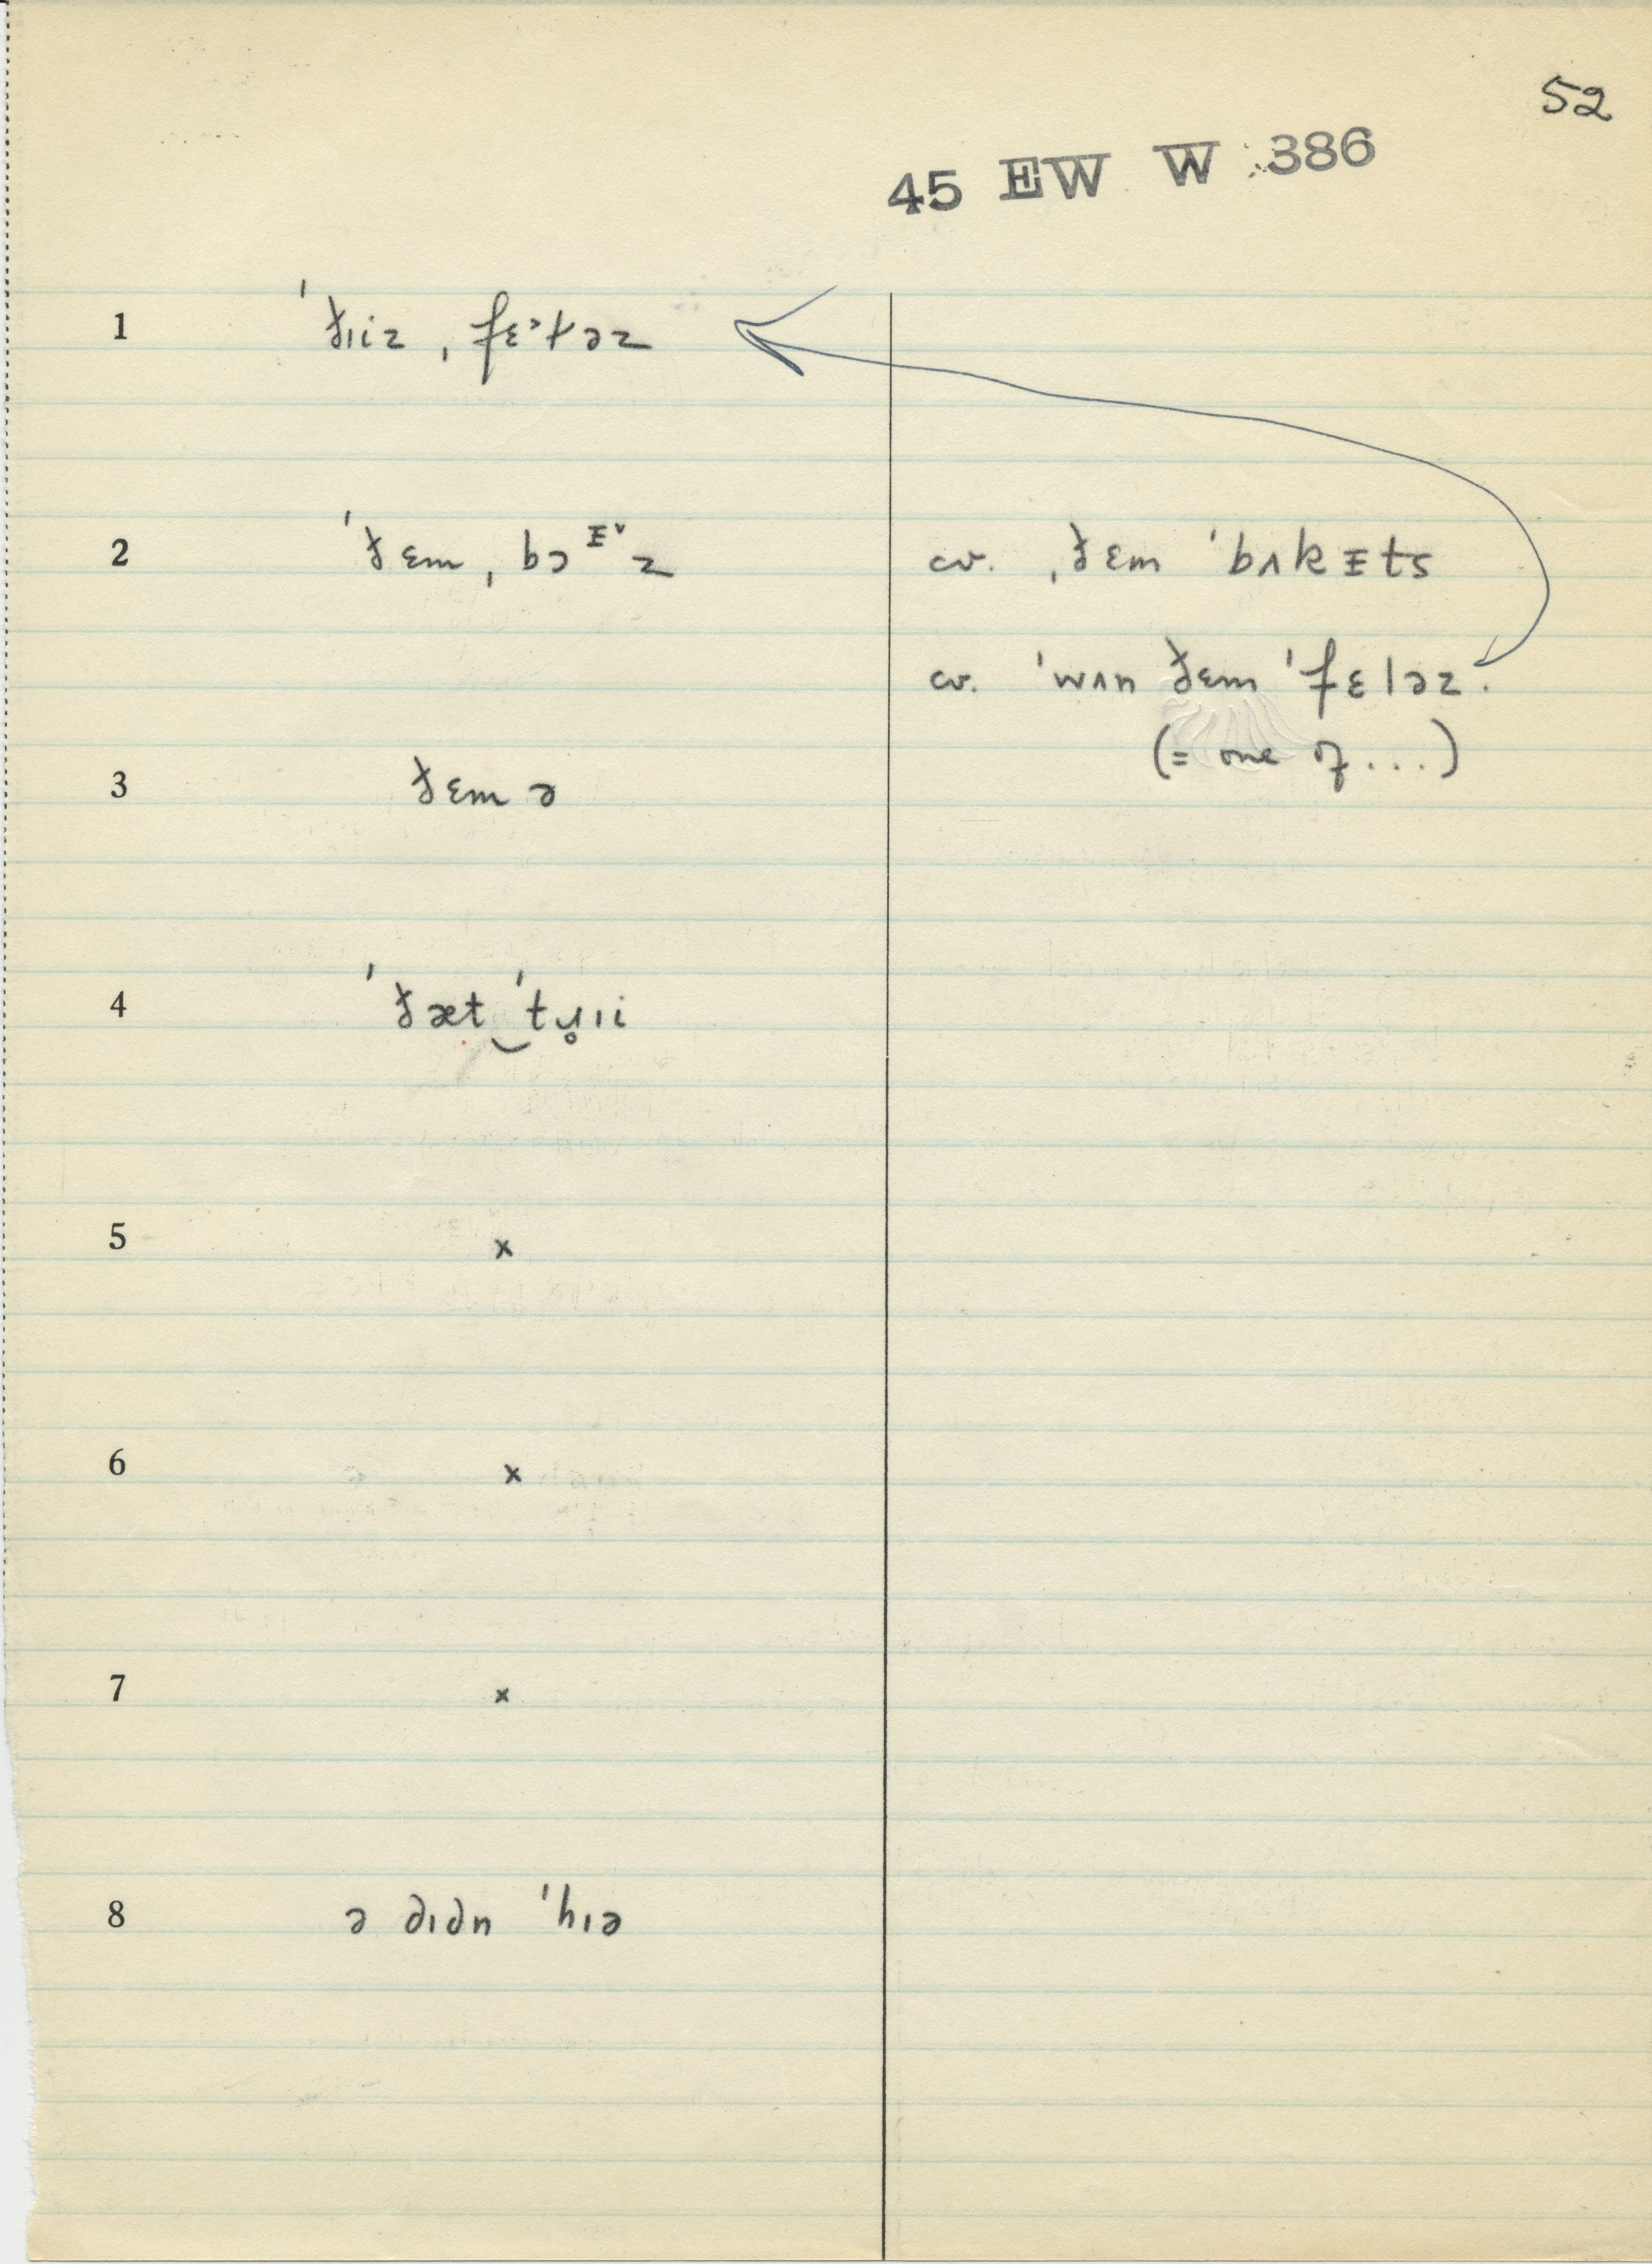 52
45 EW W 386
1 ˈðɪiz ˌfɛ˃ɫəz
2 ˈðɛm ˌbɔᵻ˅z cv. ˌðɛm ˈbʌkᵻts
cv. ˈwʌn ðɛm ˈfɛləz.
(= one of...)
3 ðɛm ə
4 ˈðæt‿ˈtɹ̥ɪi
5 x
6 x
7 x
8 ə dɪdn ˈhɪə